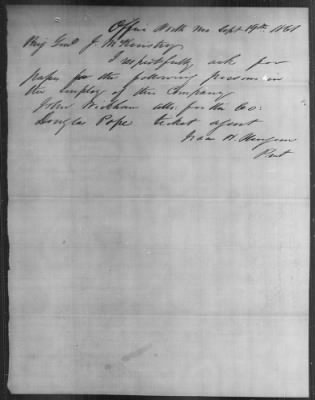 Office North Mo Sept 19th 1861
Brig Genl J. McKinstry
I respectfully ask for
passes for the following persons in
the employ of this Company
John Wickham atto. for the Co:
Dougla Pope ticket agent
Isaac H. Sturgeon
Prest